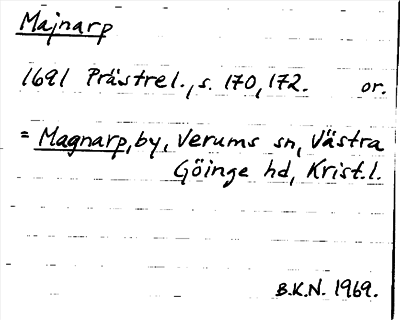 Majnarp
1691 Prästrel., s. 170, 172. or.
= Magnarp, by, Verums sn, Västra
Göinge hd, Krist. l.
B.K.N. 1969.